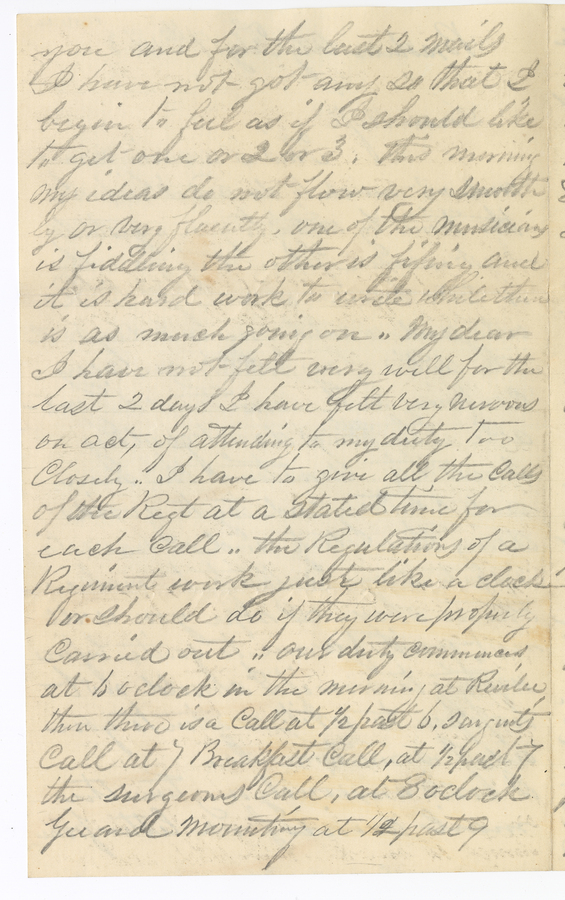 you and for the last 2 mails
I have not got any so that I
begin to feel as if I should like
to get one or 2 or 3. this morning
my ideas do not flow very smooth
ly or very fluently, one of the musicians
is fiddling the other is fifing and
it is hard work to write while there
is as much going on .. My dear
I have not felt very well for the
last 2 days I have felt very nervous
on act, of attending to my duty too
Closely .. I have to give all the Calls
of the Regt at a stated time for
each Call .. the Regulations of a
Regiment work just like a clock
or should do if they were properly
Carried out .. our duty commences
at 6 oclock in the morning at Revilee
then there is a Call at 1/2 past 6, sargents
Call at 7 Breakfast Call, at 1/2 past 7
the surgeons Call, at 8 oclock
Guard Mounting at 1/2 past 9